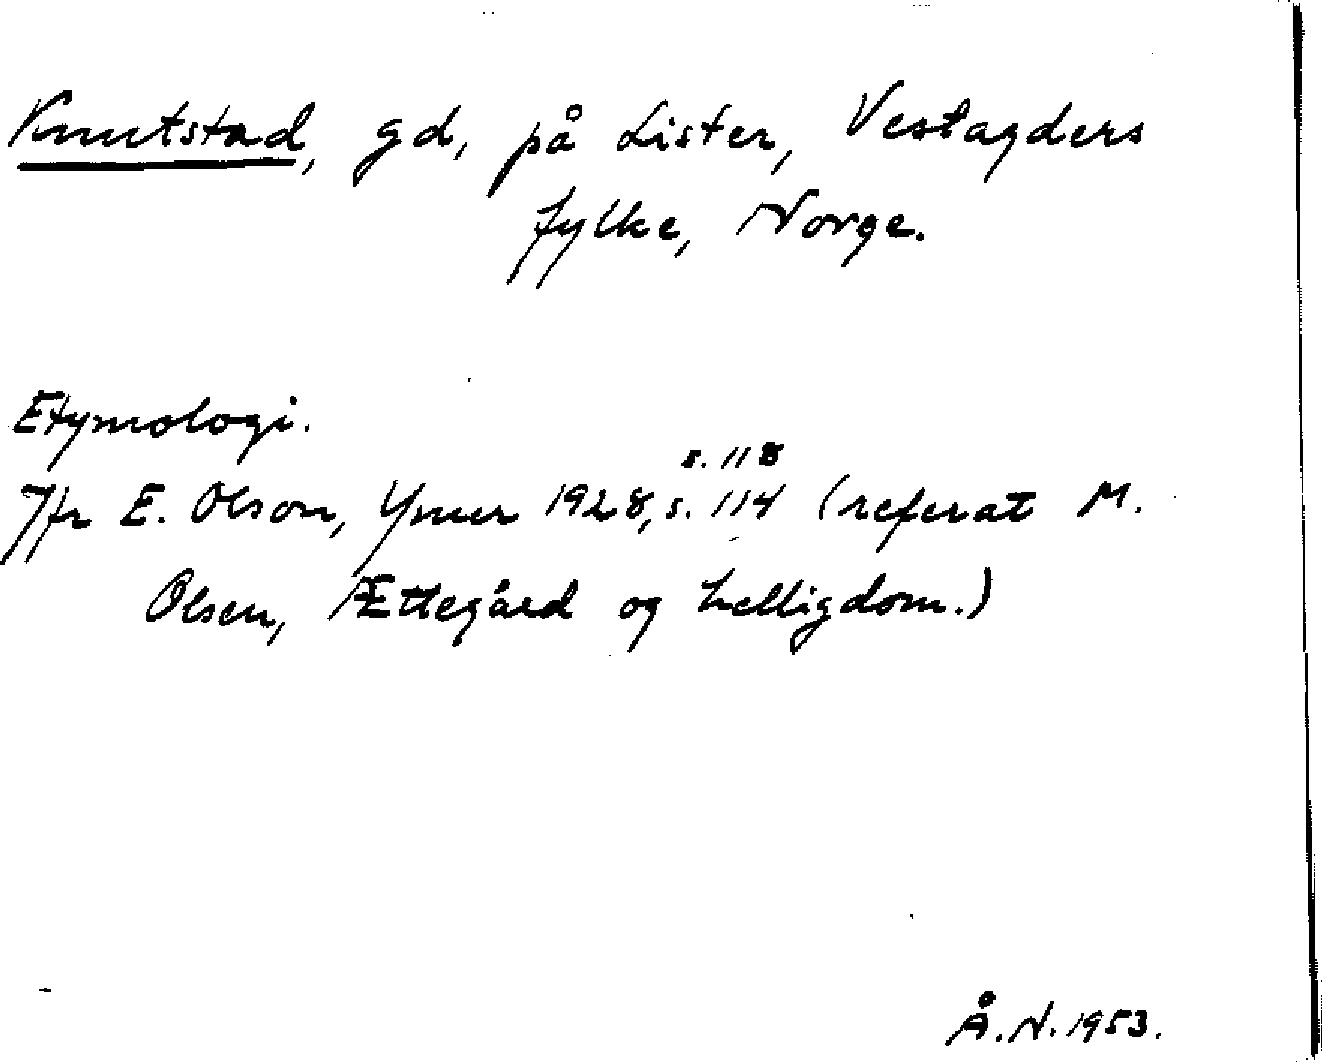 Knutstad, gd, på Lister, Vestagders
fylke, Norge.
Etymologi.
s. 118
Jfr E. Olson, Ymer 1928, s. 114 (referat M.
Olsen, Ættegård og helligdom.)
Å.N. 1953.